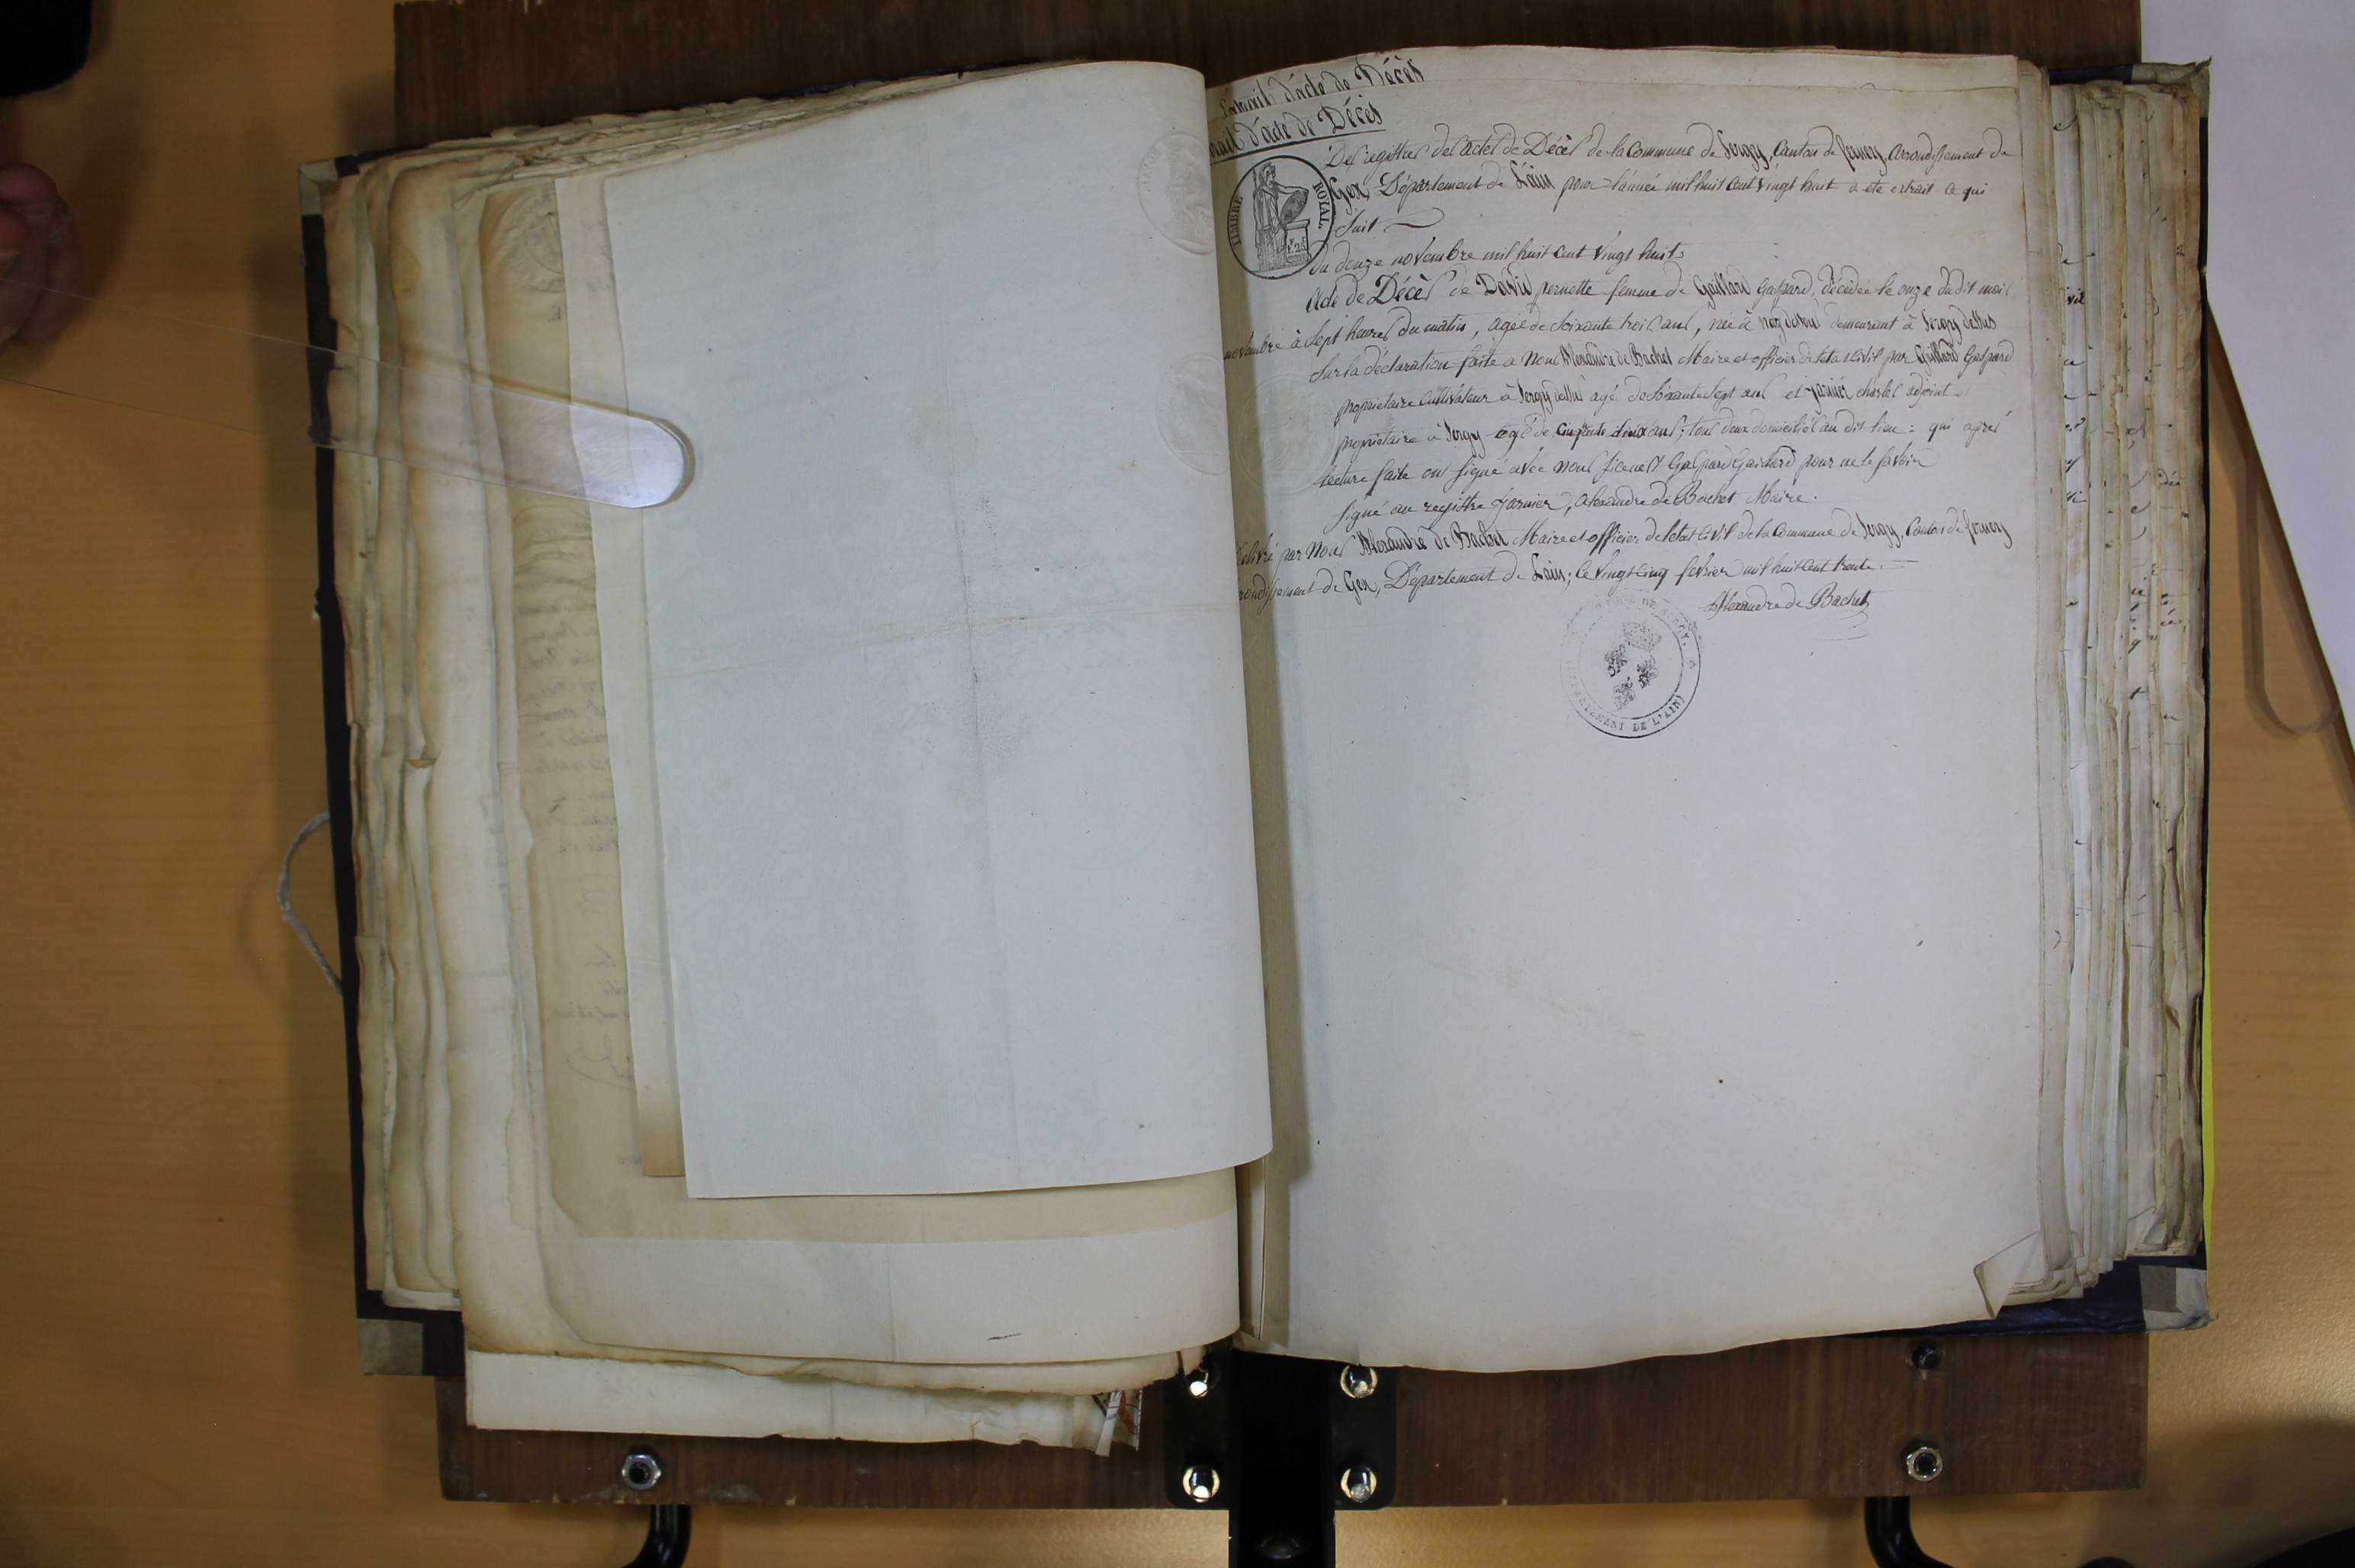 Extrait d'acte de Décès
trait d'acte de Décès
Des registres des actes de Décès de la Commune de Sergy, Canton de ferney, arrondissement de
Gex, Département de L'ain pour l'année mil huit cent vingt huit a été extrait ce qui
suit
TIMBRE ROYAL
du douze novembre mil huit cent vingt huit
acte de Décès de David pernette femme de Gaillard Gaspard, décédée le onze dudit mois
novembre à sept heures du matin, agée de soixante trois ans, née à demeurant à Sergy dessus
sur la déclaration faite à nous Alexandre de Bachet Maire et officier de l'etat civil par Gaillard Gaspard
propriétaire cultivateur à Sergy dessus agé de soixante sept ans et charles adjoint
propriétaire à Sergy agé de cinquante deux ans; tous deux domiciliés au dit lieu: qui après
lecture faite ont signé avec nous si ce n'est Gaspard Gaillard pour ne le savoir
signé au registre, Alexandre de Bachet Maire.
Délivré par nous Alexandre de Bachet Maire et officier de l'etat civil de la Commune de Sergy, Canton de ferney
rondissement de Gex, Département de L'ain; le vingt cinq fevrier mil huit cent trente.
Alexandre de Bachet
DE SERGY.
DEPARTEMENT DE L'AIN